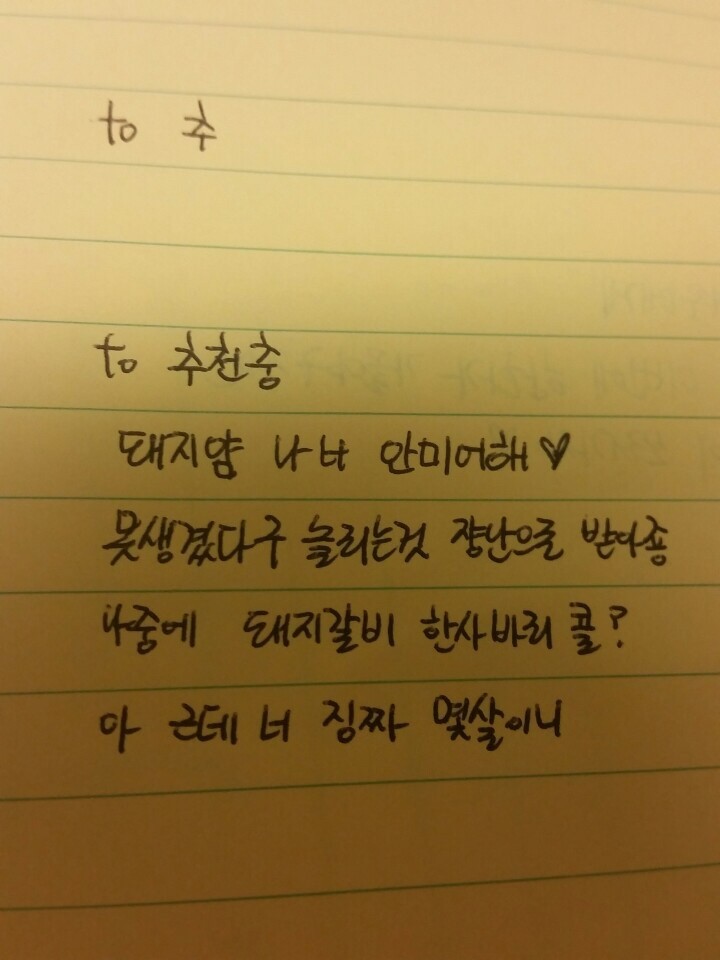 to 추
to 추천충
돼지얌 나 너 안미어해♥
못생겼다구 놀리는것 쟝난으로 받아죵
나중에 돼지갈비 한사바리 콜?
아 근데 너 징짜 몇살이니